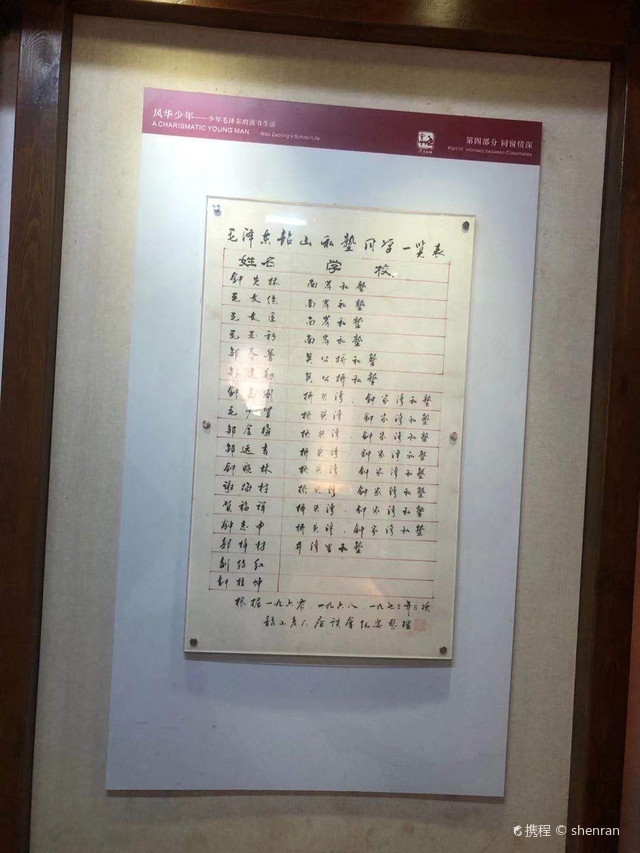 风华少年——少年毛泽东的读书生活
A CHARISMATIC YOUNG MAN Mao Zedong's School Life
第四部分 同窗情深
Part IV Intimacy between Classmates
毛泽东韶山私塾同学一览表
姓名 学校
钟先林 南岸私塾
毛文 南岸私塾
毛 南岸私塾
毛 南岸私塾
邹春 关公桥私塾
邹 关公桥私塾
钟 桥头湾、钟家湾私塾
毛 桥头湾、钟家湾私塾
邹金 桥头湾、钟家湾私塾
郭运 桥头湾、钟家湾私塾
钟晓林 桥头湾、钟家湾私塾
谢梅村 桥头湾、钟家湾私塾
贺福祥 桥头湾、钟家湾私塾
钟志申 桥头湾、钟家湾私塾
郭梓材 井湾里私塾
红
坤
根据一九六零、一九六八、一九七二年三次
韶山老人座谈会纪要整理
携程 © shenran